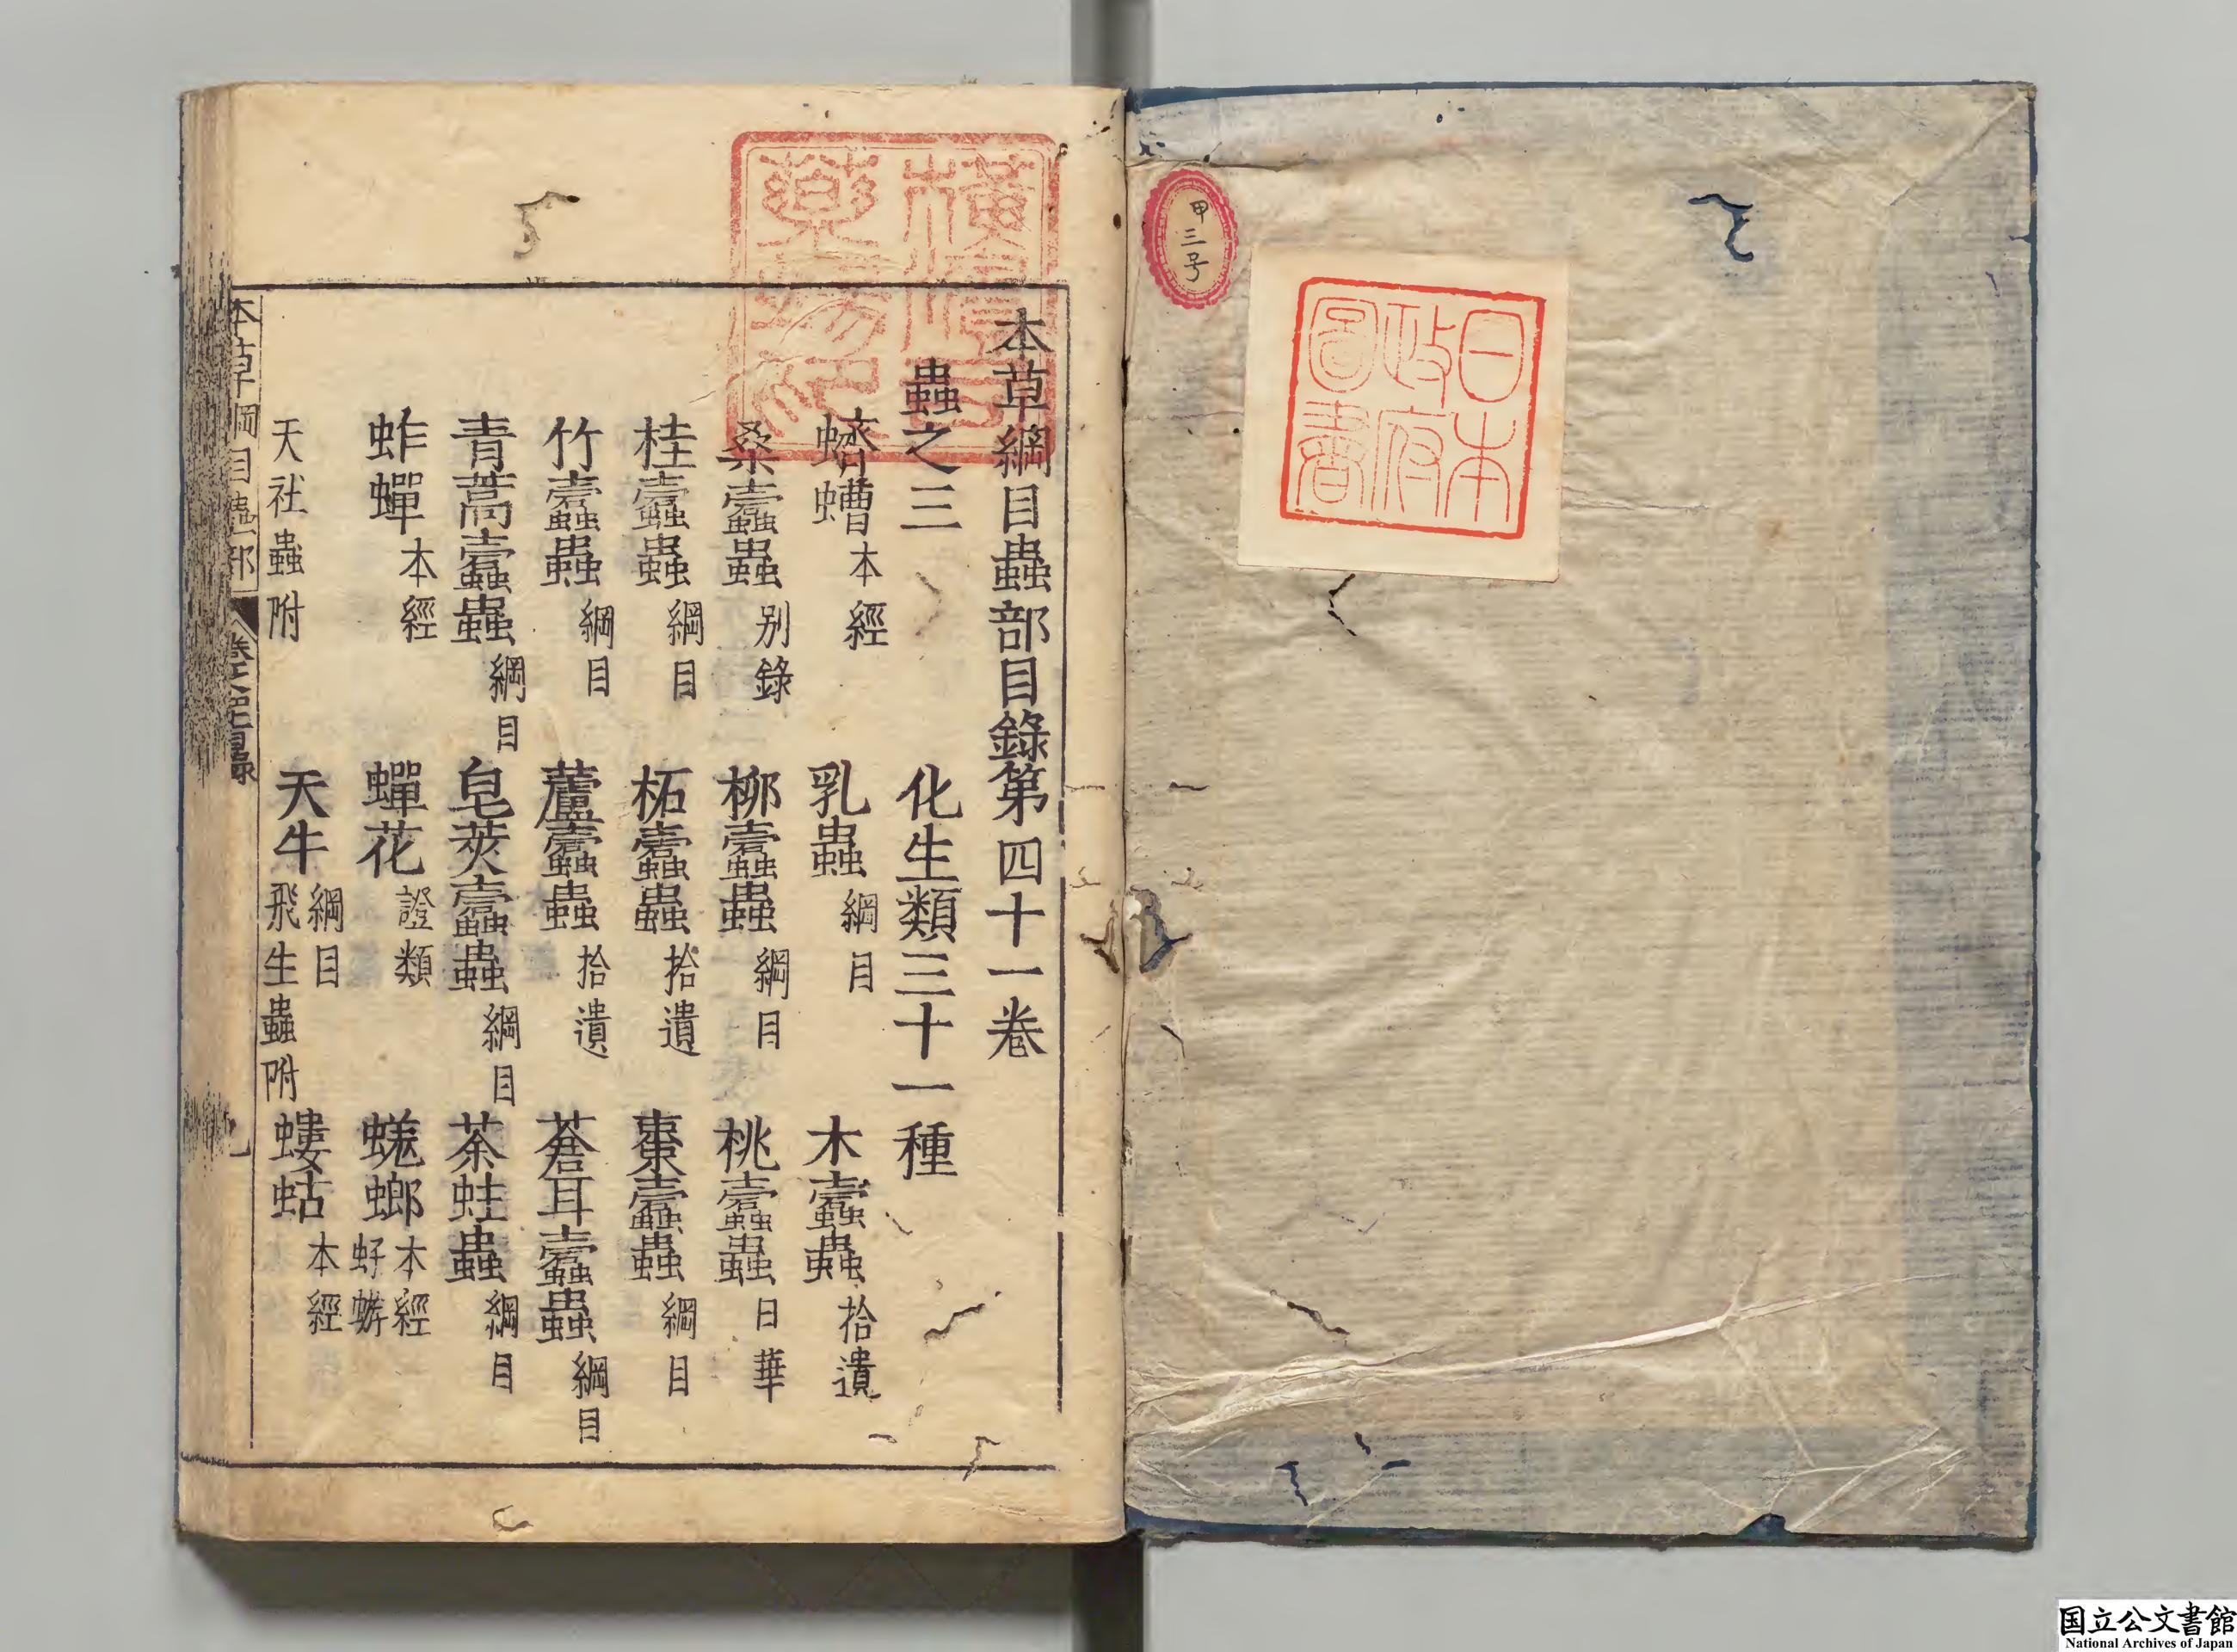 甲三号
日本
政府
圖書
本草綱目蟲部目錄第四十一卷
蟲之三 化生類三十一種
蠐螬本經 乳蟲綱目 木蠹蟲拾遺
桑蠹蟲別錄 柳蠹蟲綱目 桃蠹蟲日華
桂蠹蟲綱目 柘蠹蟲拾遺 棗蠹蟲綱目
竹蠹蟲綱目 蘆蠹蟲拾遺 蒼耳蠹蟲綱目
青蒿蠹蟲綱目 皂莢蠹蟲綱目 茶蛀蟲綱目
蚱蟬本經 蟬花證類 蜣蜋本經 蜉蝣
天社蟲附 天牛綱目 飛生蟲附 螻蛄本經
本草綱目蟲部
国立公文書館
National Archives of Japan